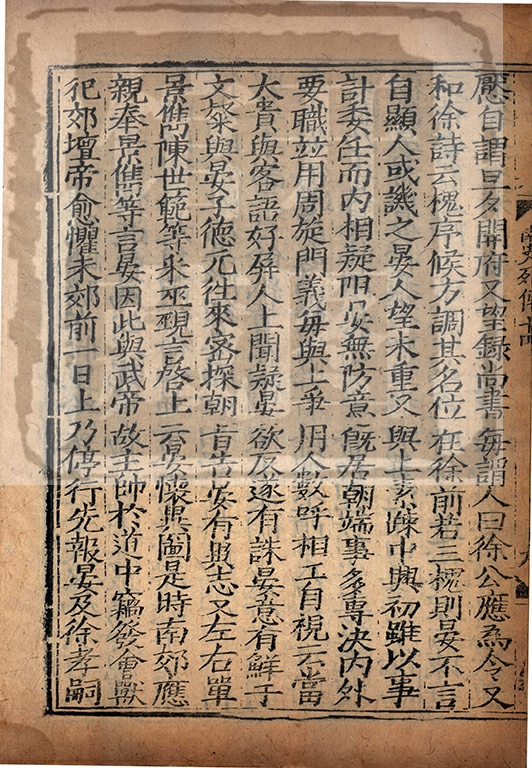 懕自謂旦夕開府又望錄尚書每謂人曰徐公應為令又
和徐詩云槐序候方調其名位在徐前若三槐則晏不言
自顯人或譏之晏人望未重又與上素疎中興初雖以事
計委任而内相疑阻晏無防意旣居朝端事多專決内外
要職並用周旋門義每與上爭用人數呼相工自視云當
大貴與客語好屏人上聞疑晏欲反遂有誅晏意有鮮于
文粲與晏子德元往來密探朝旨告晏有異志又左右單
景雋陳世範等采巫覡言啓上云晏懷異圖是時南郊應
親奉景雋等言晏因此與武帝故主帥於道中竊發會獸
犯郊壇帝愈懼未郊前一日上乃停行先報晏及徐孝嗣